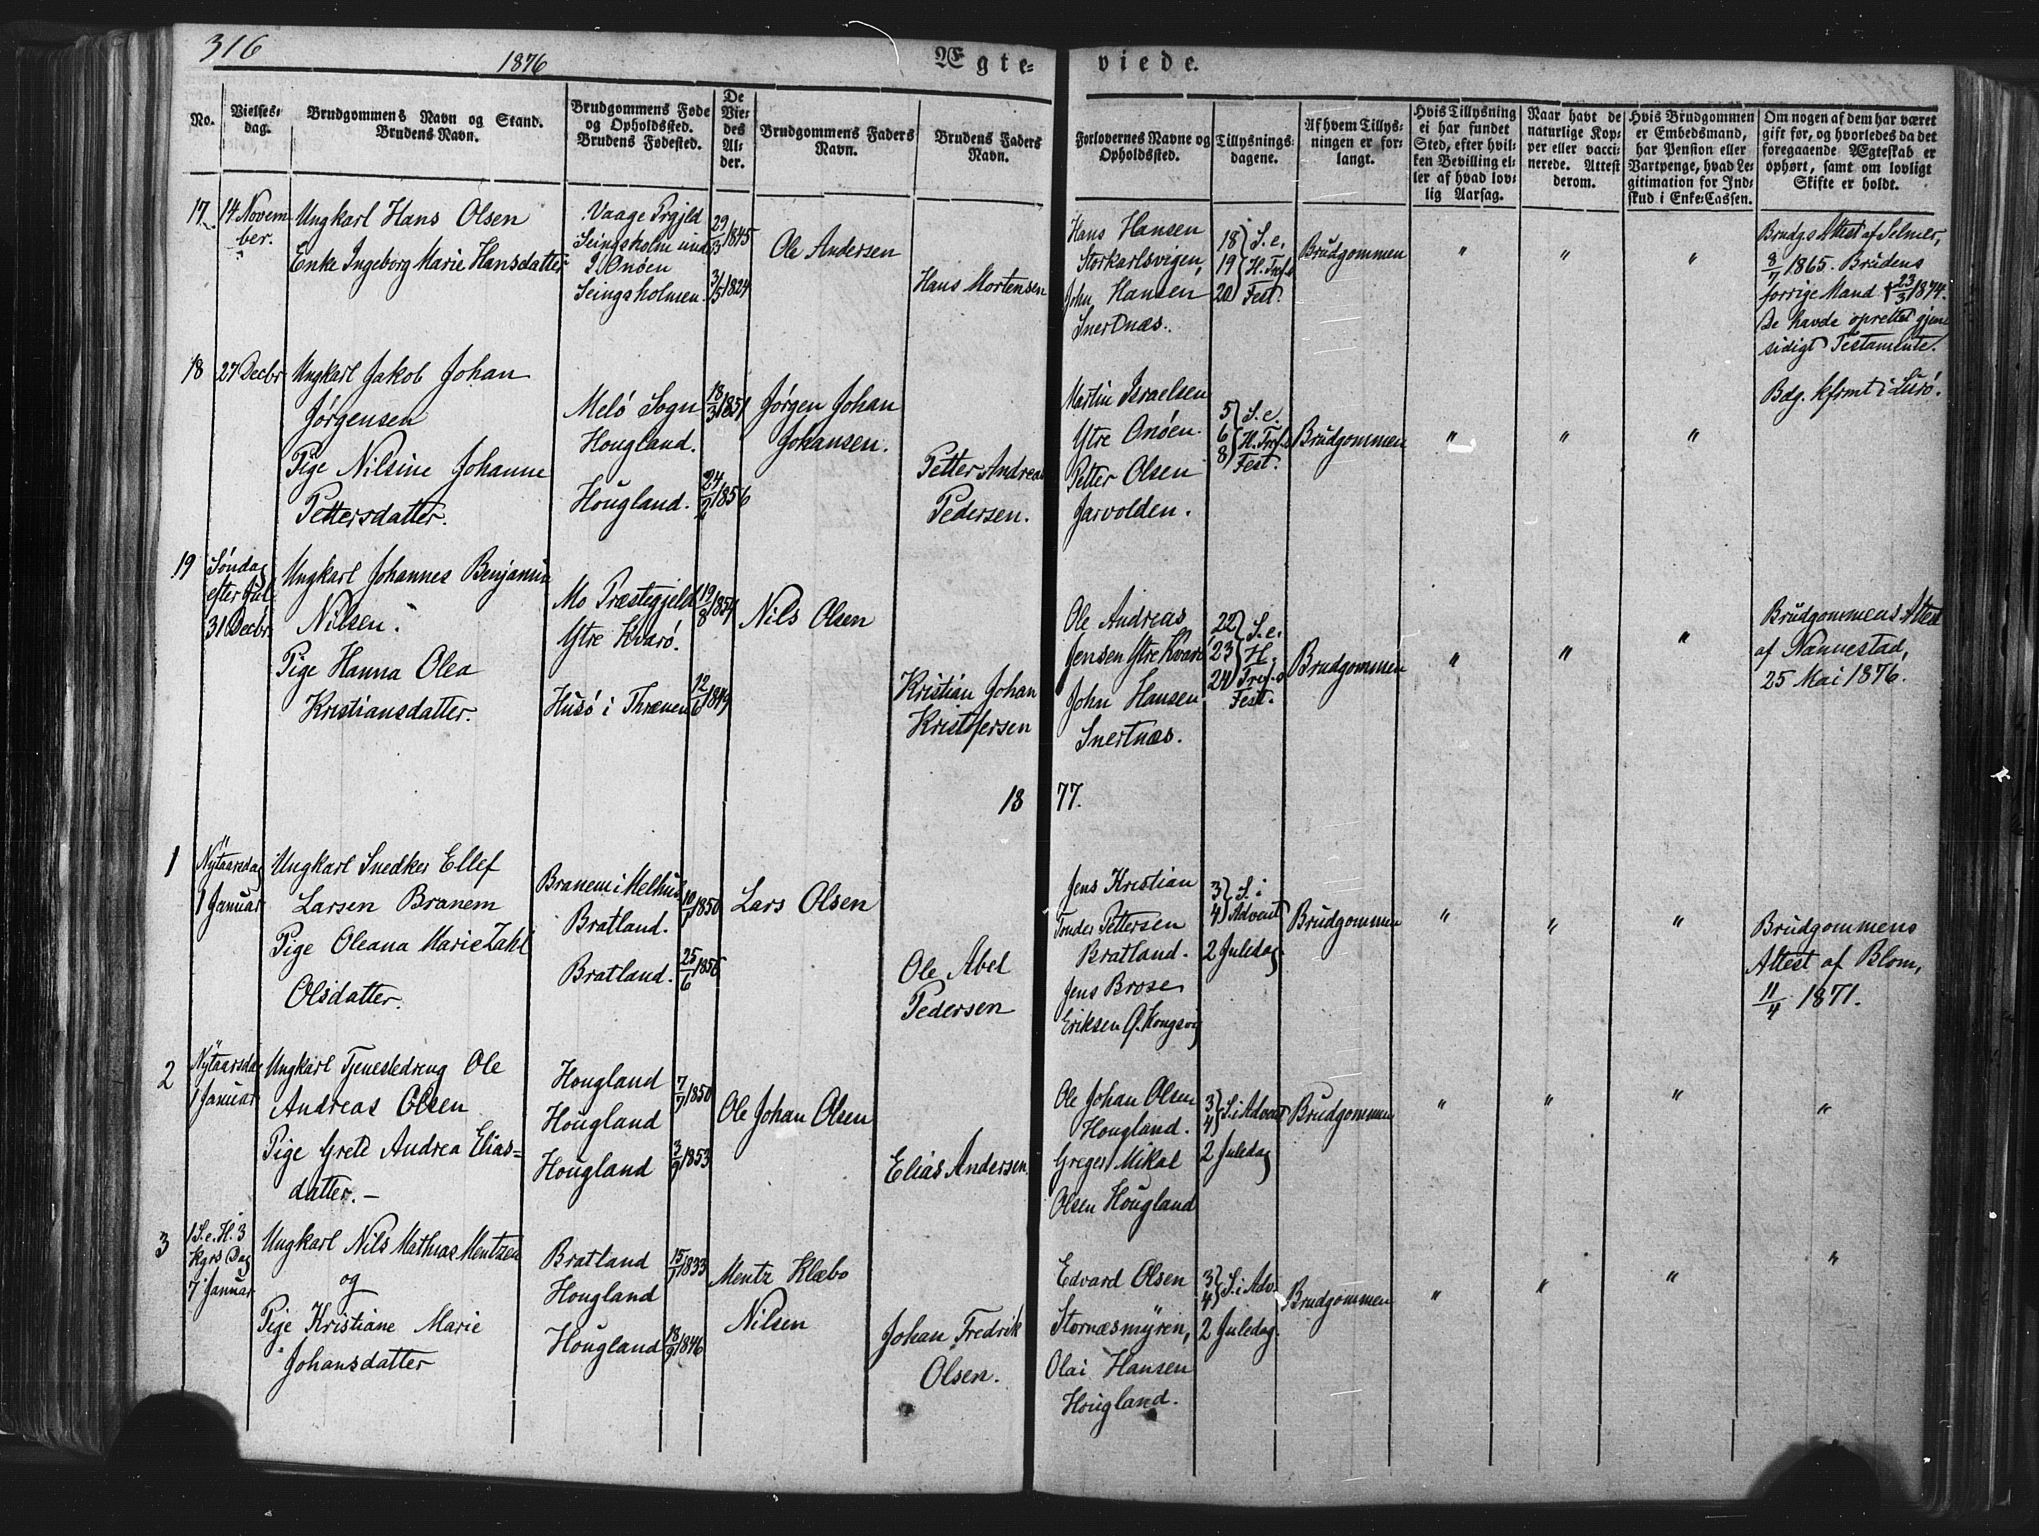 316
1876
Ægte- viede.
No.
Vielses-
dag.
Brudgommens Navn og Stand.
Brudens Navn.
Brudgommens Føde
og Opholdssted.
Brudens Fødested.
De
Vie-
des
Al-
der.
Brudgommens Faders
Navn.
Brudens Faders
Navn.
Forlovernes Navne og
Opholdssted.
Tillysnings-
dagene.
Af hvem Tillys-
ningen er for-
langt.
Hvis Tillysning
ei har fundet
Sted, efter hvil-
ken Bevilling el-
ler af hvad lov-
lig Aarsag.
Naar havt de
naturlige Kop-
per eller vacci-
nerede. Attest
derom.
Hvis Brudgommen
er Embedsmand,
har Pension eller
Vartpenge, hvad Le-
gitimation for Ind-
skud i Enke-Cassen.
Om nogen af dem har været
gift før, og hvorledes da det
foregaaende Ægteskab er
ophørt, samt om lovligt
Skifte er holdt.
17.
14 Novem
ber.
Ungkarl Hans Olsen
Enke Ingeborg Marie Hansdatter
Vaage Prgjld
Seingsholm und
I. Onöen
Seingsholmen
29/3 1845
3/5 1824
Ole Andersen
Hans Mortensen
Hans Hansen
Storkarlsvigen,
John Hansen
Snertnæs.
18 } S. e.
19 } H. Tref.s
20 } Fest.
Brudgommen
" " "
Brudgs Attest af Selmer,
8/7 1865. Brudens
forrige Mand † 23/3 1874.
De havde oprettet gjen
sidigt Testamente.
18
27 Decbr
Ungkarl Jakob Johan
Jörgensen
Pige Nilsine Johanne
Pettersdatter.
Melö Sogn
Hougland.
Hougland.
18/3 1851
24/2 1856
Jørgen Johan
Johansen.
Petter Andreas
Pedersen.
Martin Israelsen
Ytre Onöen
Petter Olsen
Jarvolden.
5 } S. e.
6 } H. Tref.s
8 } Fest.
Brudgommen
" " "
Bdg. kfrmt i Lurö.
19
Søndag
efter Jul
31 Decbr
Ungkarl Johannes Benjamin
Nilsen.
Pige Hanna Olea
Kristiansdatter.
Mo Præstegjeld
Ytre Kvarö.
Husö i Thrænen
19/8 1854
12/6 1849
Nils Olsen
Kristian Johan
Kristofersen
Ole Andreas
Jensen Ytre Kvarö
John Hansen
Snertnæs.
22 } S. e.
23 } H.
24 } Tref.s
Fest.
Brudgommen
" " "
Brudgommens Attest
af Nannestad,
25 Mai 1876.
1877.
1
Nytaarsdag
1 Januar
Ungkarl Snedker Ellef
Larsen Branem
Pige Oleana Marie Zahl
Olsdatter.
Branem i Melhus
Bratland.
Bratland.
25/6 1856
Lars Olsen
Ole Abel
Pedersen
Jens Kristian
Tonder Pettersen
Bratland.
Jens Brose
Eriksen Ø. Kongsvig
3 } S. i
4 } Advent
2 Juledag
Brudgommen
" " "
Brudgommens
Attest af Blom,
11/4 1871.
2
Nytaarsdag
1 Januar
Ungkarl Tjenestedreng Ole
Andreas Olsen
Pige Grete Andrea Elias-
datter. –
Hougland
Hougland
Hougland
7/9 1850
3/9 1853
Ole Johan Olsen
Elias Andersen
Ole Johan Olsen
Hougland.
Greger Mikal
Olsen Hougland
3 } S. i Advent
4 }
2 Juledag
Brudgommen
" " " "
3
1 S. e. H. 3
Kgrs Dag
7 Januar
Ungkarl Nils Mathias Mentzen
og
Pige Kristiane Marie
Johansdatter
Bratland
Hougland
Hougland
15/7 1833
18/9 1846
Mentz Klæbo
Nilsen
Johan Fredrik
Olsen.
Edvard Olsen
Stornæsmyren,
Olai Hansen
Hougland.
3 } S. i Adv.
4 }
2 Juledag.
Brudgommen
" " " "